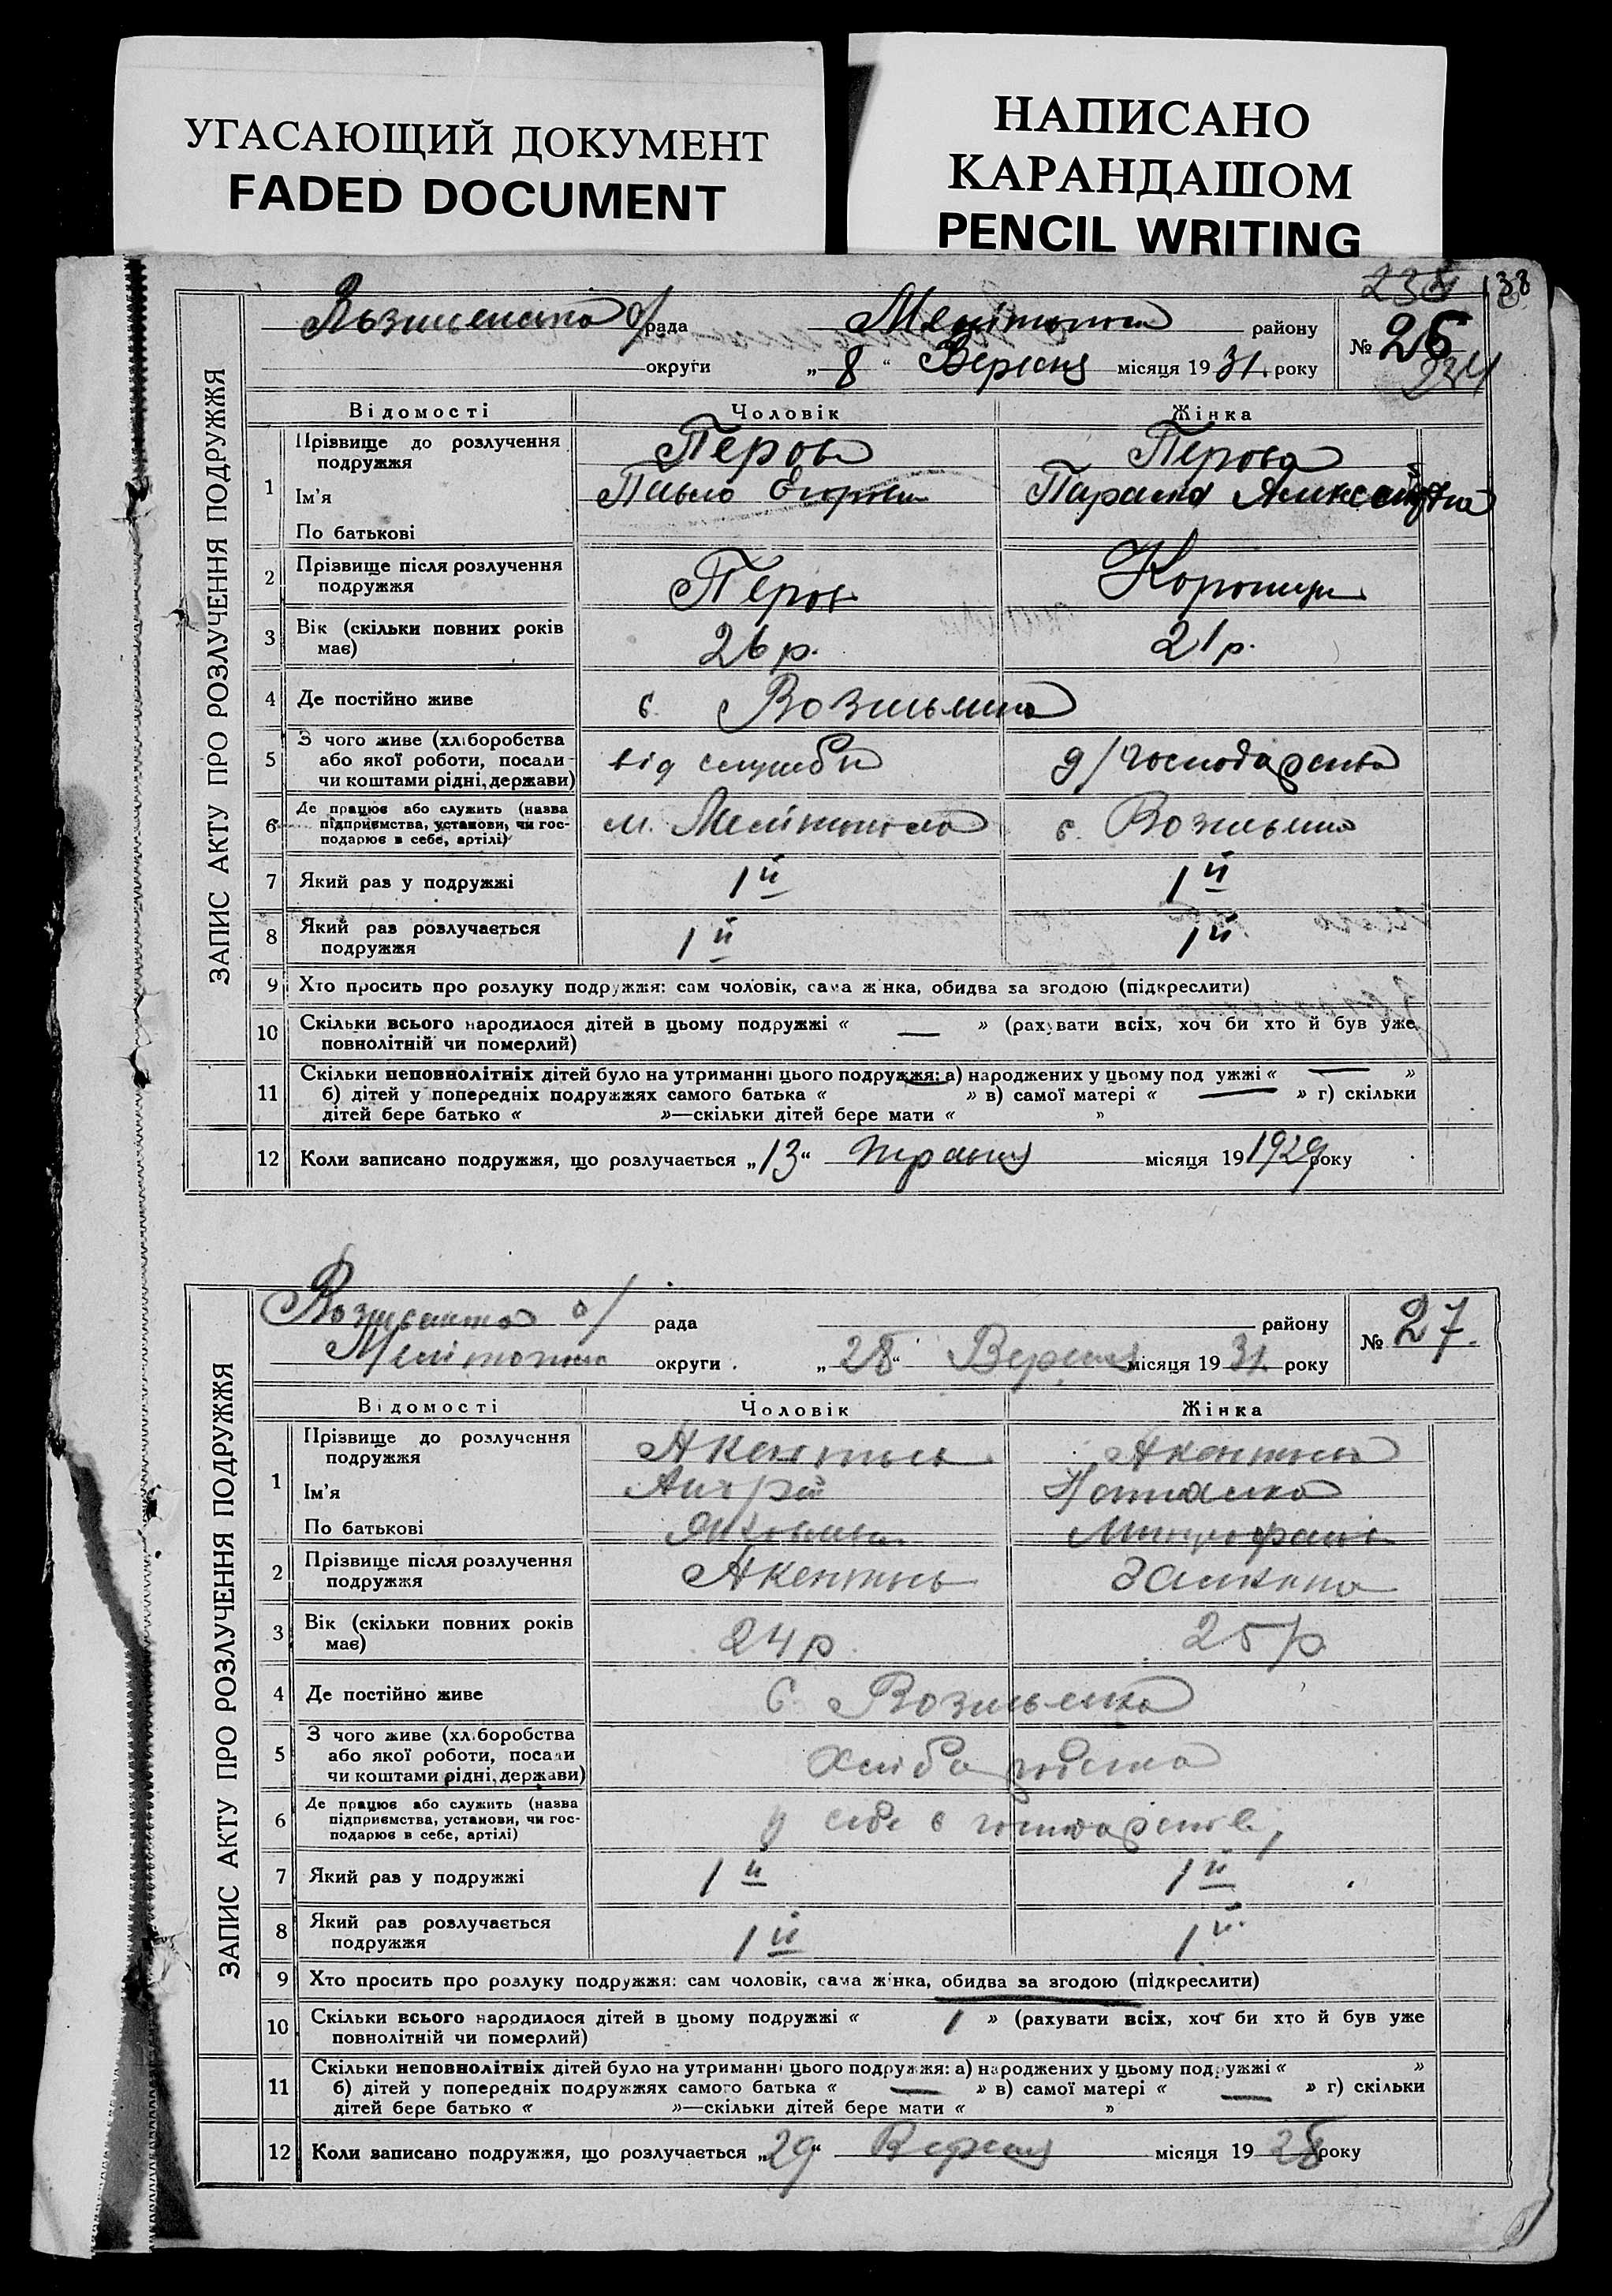 УГАСАЮЩИЙ ДОКУМЕНТ
FADED DOCUMENT
НАПИСАНО
КАРАНДАШОМ
PENCIL WRITING
138
ЗАПИС АКТУ ПРО РОЗЛУЧЕННЯ ПОДРУЖЖЯ
рада району
№ 26
234
округи „ 8 “ Вересня місяця 1931. року
Відомості Чоловік Жінка
1 Прізвище до розлучення подружжя Перов Перова
Ім'я Павло Параска
По батькові
2 Прізвище після розлучення подружжя Перов
3 Вік (скільки повних років має) 26 р. 21 р.
4 Де постійно живе с.
5 З чого живе (хліборобства або якої роботи, посади чи коштами рідні, держави) від служби д/господарства
6 Де працює або служить (назва підприємства, установи, чи господарює в себе, артілі) м. с.
7 Який раз у подружжі 1й 1й
8 Який раз розлучається подружжя 1й 1й
9 Хто просить про розлуку подружжя: сам чоловік, сама жінка, обидва за згодою (підкреслити)
10 Скільки всього народилося дітей в цьому подружжі « — » (рахувати всіх, хоч би хто й був уже
повнолітній чи померлий)
11 Скільки неповнолітніх дітей було на утриманні цього подружжя: а) народжених у цьому подружжі « — »
б) дітей у попередніх подружжях самого батька « » в) самої матері « — » г) скільки
дітей бере батько « »—скільки дітей бере мати « »
12 Коли записано подружжя, що розлучається „13“ травня місяця 191929 року
ЗАПИС АКТУ ПРО РОЗЛУЧЕННЯ ПОДРУЖЖЯ
рада району
№ 27.
округи „28“ Вересня місяця 1931 року
Відомості Чоловік Жінка
1 Прізвище до розлучення подружжя
Ім'я Андрій
По батькові
2 Прізвище після розлучення подружжя
3 Вік (скільки повних років має) 24 р. 25 р
4 Де постійно живе С.
5 З чого живе (хліборобства або якої роботи, посади чи коштами рідні, держави)
6 Де працює або служить (назва підприємства, установи, чи господарює в себе, артілі) у себе в
7 Який раз у подружжі 1й 1й
8 Який раз розлучається подружжя 1й 1й
9 Хто просить про розлуку подружжя: сам чоловік, сама жінка, обидва за згодою (підкреслити)
10 Скільки всього народилося дітей в цьому подружжі « 1 » (рахувати всіх, хоч би хто й був уже
повнолітній чи померлий)
11 Скільки неповнолітніх дітей було на утриманні цього подружжя: а) народжених у цьому подружжі « »
б) дітей у попередніх подружжях самого батька « — » в) самої матері « — » г) скільки
дітей бере батько « »—скільки дітей бере мати « »
12 Коли записано подружжя, що розлучається „29“ Вересня місяця 1928 року